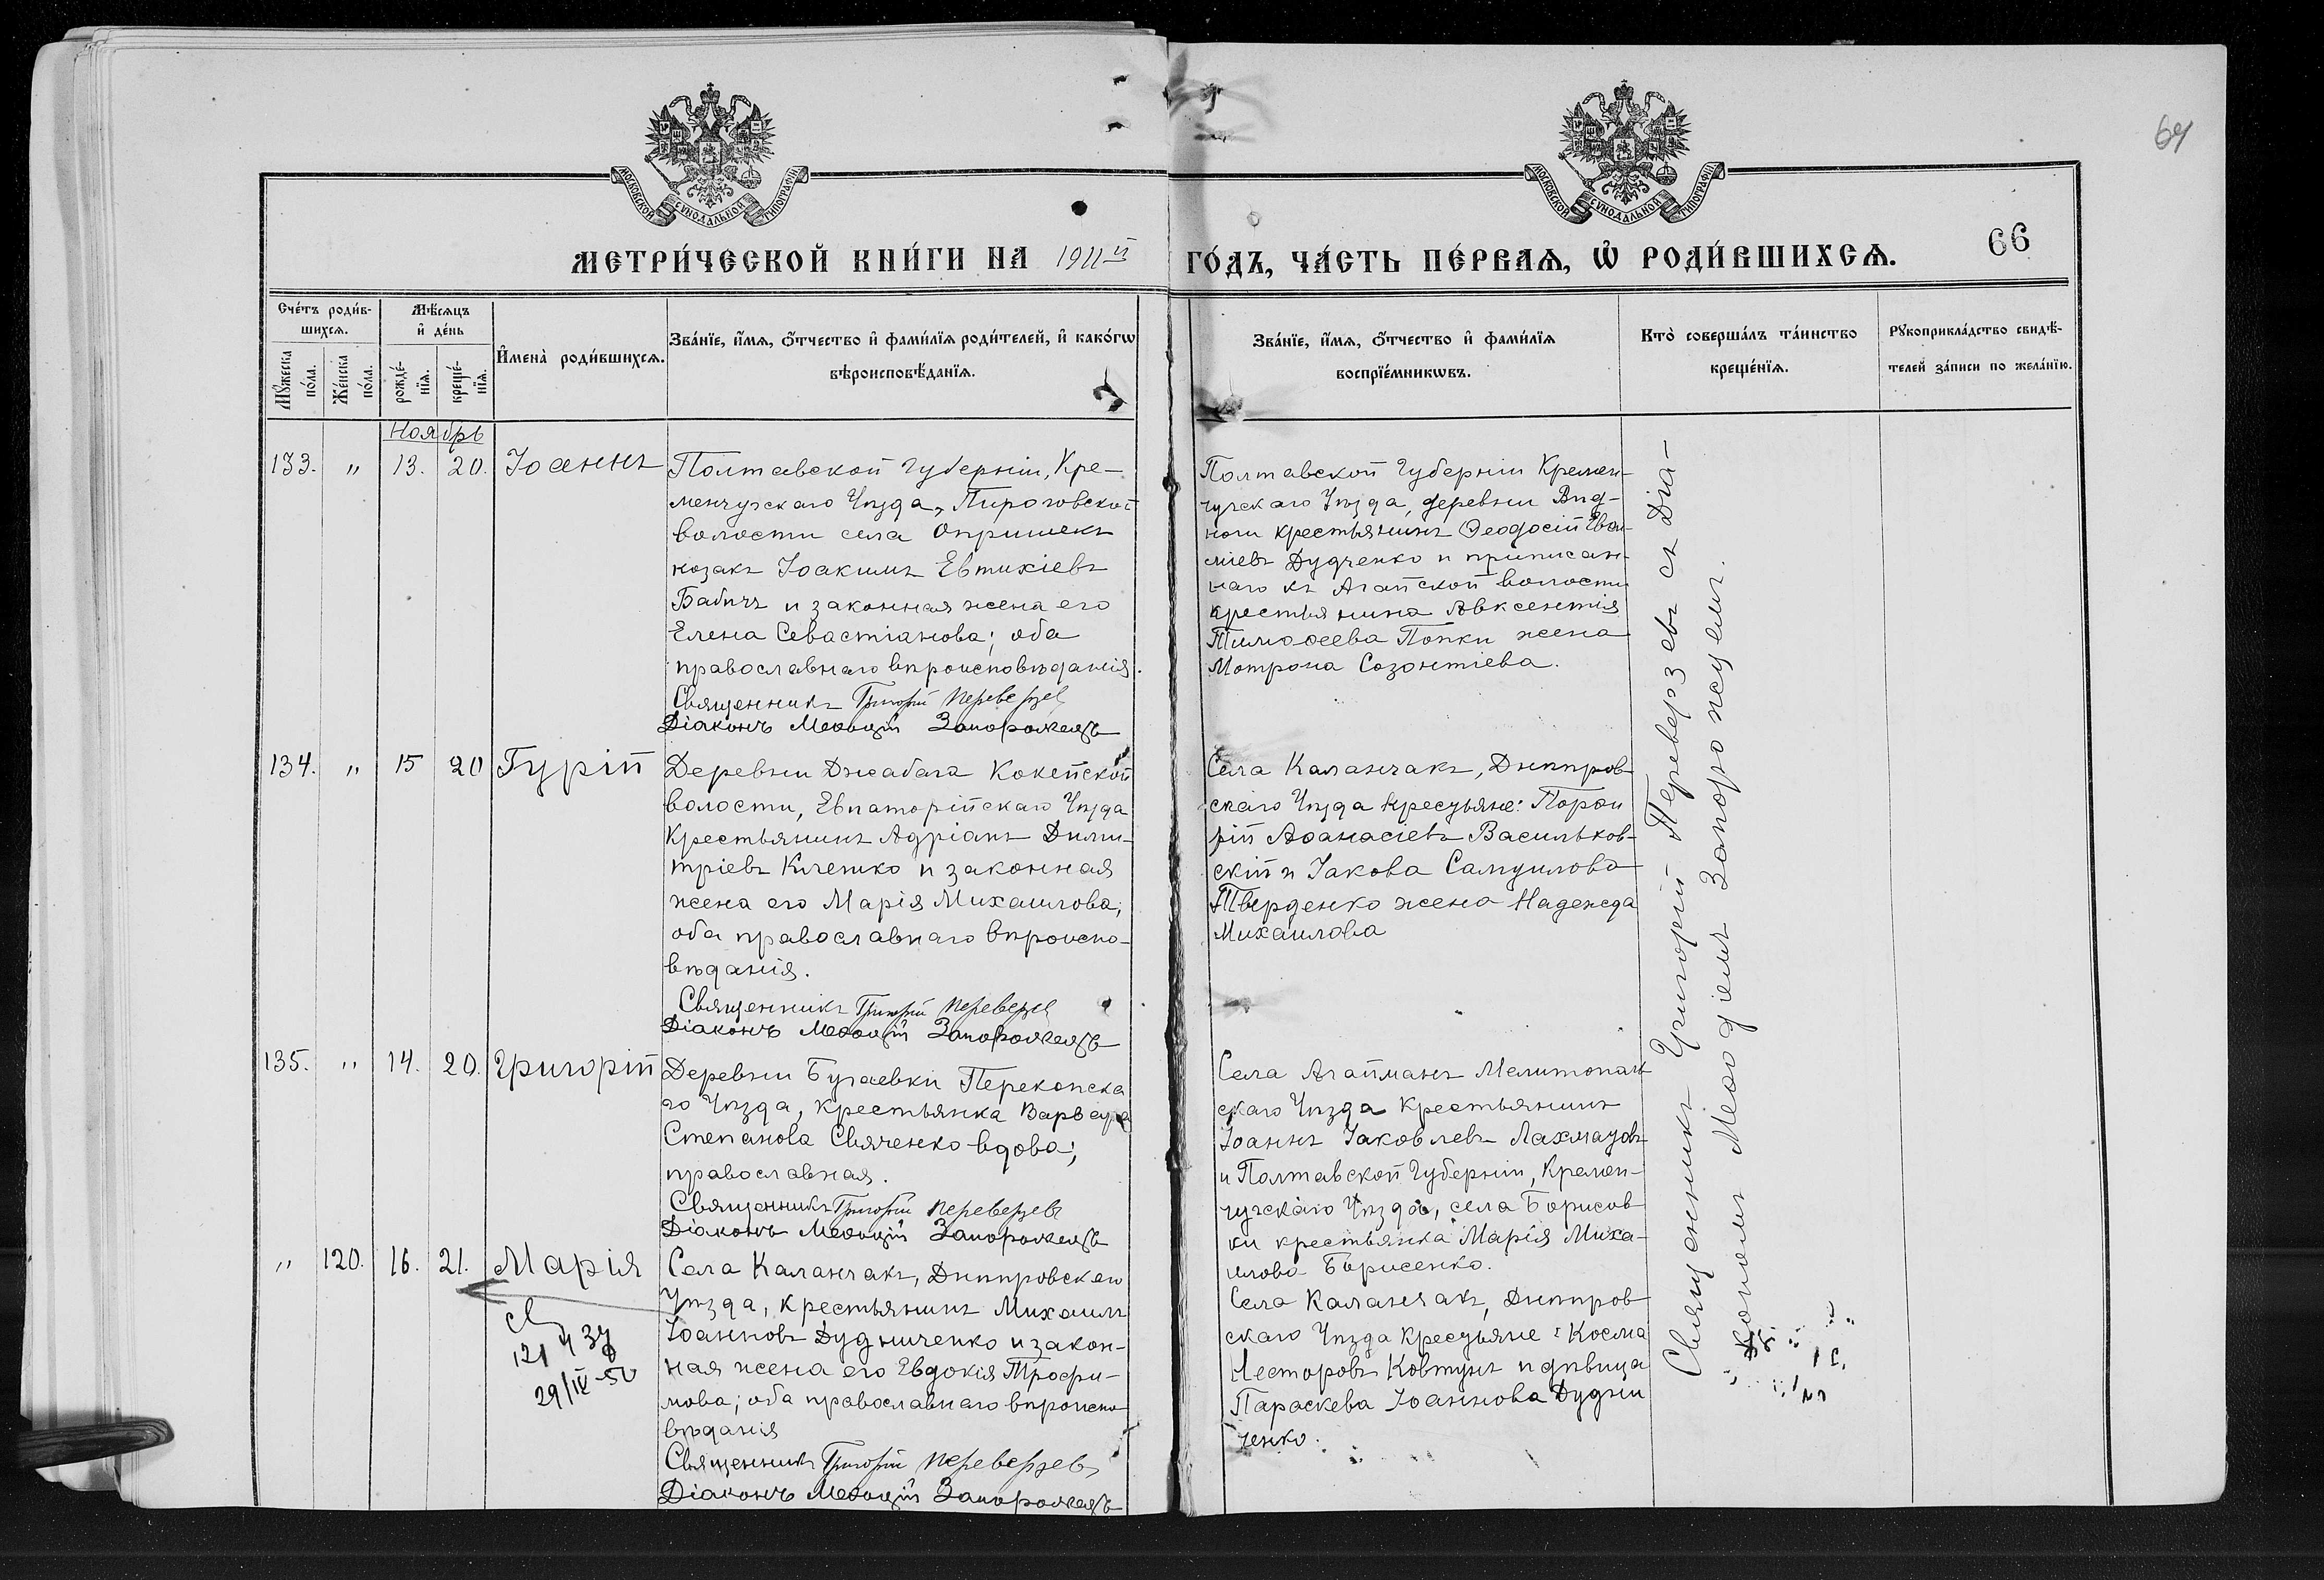 64
МОСКОВСКОЙ СѴНОДАЛЬНОЙ ТИПОГРАФІИ
МОСКОВСКОЙ СѴНОДАЛЬНОЙ ТИПОГРАФІИ
МЕТРИ́ЧЕСКОЙ КНИ́ГИ НА 1911й ГО́ДЪ, ЧА́СТЬ ПЕ́РВАѦ, Ѡ҆ РОДИ́ВШИХСѦ. 66
Сче́тъ роди́в-
шихсѧ.
Мꙋ́жеска
по́ла.
Же́нска
по́ла.
Мѣ́сѧцъ
и҆ де́нь
рожде́-
нїѧ.
креще́-
нїѧ.
И҆мена̀ роди́вшихсѧ.
Зва́нїе, и҆́мѧ, ѻ҆́тчество и҆ фами́лїѧ роди́телей, и҆ како́гѡ
вѣроисповѣ́данїѧ.
Зва́нїе, и҆́мѧ, ѻ҆́тчество и҆ фами́лїѧ
воспрїе́мникѡвъ.
Кто̀ соверша́лъ та́инство
креще́нїѧ.
Рꙋкоприкла́дство свидѣ́-
телей за́писи по жела́нїю.
Ноябрь
133. " 13. 20. Іоаннъ
Полтавской Губерніи, Кре-
менчугскаго Уѣзда, Пироговской
волости села Опришекъ
козакъ Іоакимъ Евтихіевъ
Бабичъ и законная жена его
Елена Севастіанова; оба
православнаго вѣроисповѣданія.
Священникъ Григорій Переверзев
Діаконъ Меѳодій Запорожецъ
Полтавской Губерніи Кремен-
чугскаго Уѣзда, деревни
крестьянинъ Ѳеодосій
Дудченко и приписан-
наго къ Агайской волости
крестьянина Авксентія
Тимоѳеева Попки жена
Мотрона Созонтіева.
134. " 15 20 Гурій
Деревни Джабага Кокейской
волости, Евпаторійскаго Уѣзда
Крестьянинъ Адріанъ Дими-
тріевъ Клешко и законная
жена его Марія Михаилова;
оба православнаго вѣроиспо-
вѣданія.
Священникъ Григорій Переверзев
Діаконъ Меѳодій Запорожецъ
Села Каланчакъ, Днѣпров-
скаго Уѣзда Кресуьяне: Порфи
рій Аѳанасіевъ Васильков-
скій и Іакова Самуилова
Тверденко жена Надежда
Михаилова
135. " 14. 20. Григорій
Деревни Бугаевки Перекопска
го Уѣзда, крестьянка Варвара
Степанова Свяченко вдова;
православная.
Священникъ Григорій Переверзевъ
Діаконъ Меѳодій Запорожецъ
Села Агайманъ Мелитополь
скаго Уѣзда Крестьянинъ
Іоаннъ Іаковлевъ
и Полтавской Губерніи, Кремен-
чугскаго Уѣзда, села Борисов
ки крестьянка Марія Миха-
илова Борисенко.
" 120. 16. 21. Марія
Села Каланчакъ, Днѣпровскаго
Уѣзда, крестьянинъ Михаилъ
Іоанновъ Дудниченко и закон-
ная жена его Евдокія Трофи-
мова; оба православнаго вѣроиспо
вѣданія
Священникъ Григорій Переверзевъ
Діаконъ Меѳодій Запорожецъ
29/IV-50
Села Каланчакъ, Днѣпров
скаго Уѣзда Кресуьяне: Косма
Несторовъ Ковтунъ и дѣвица
Параскева Іоаннова Дудни
ченко.
Священникъ Григорій Переверзевъ съ Діа-
кономъ Меѳодіемъ Запорожцемъ.